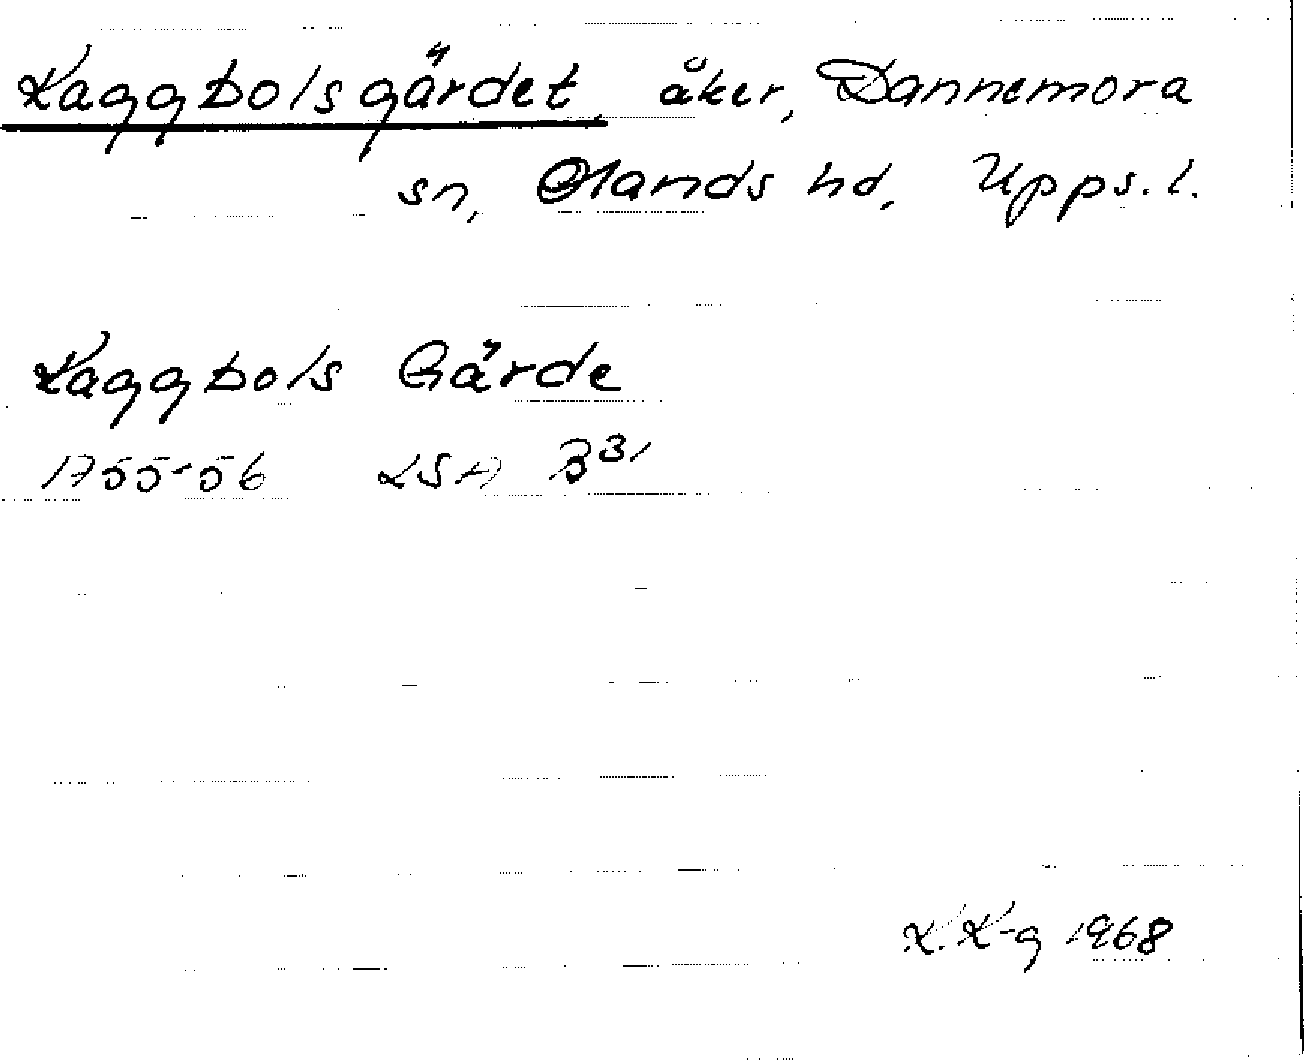 Kaggbolsgärdet, åker, Dannemora
sn, Olands hd, Upps. l.
Kaggbols Gärde
1755-56 LSA B31
K. K-g 1968